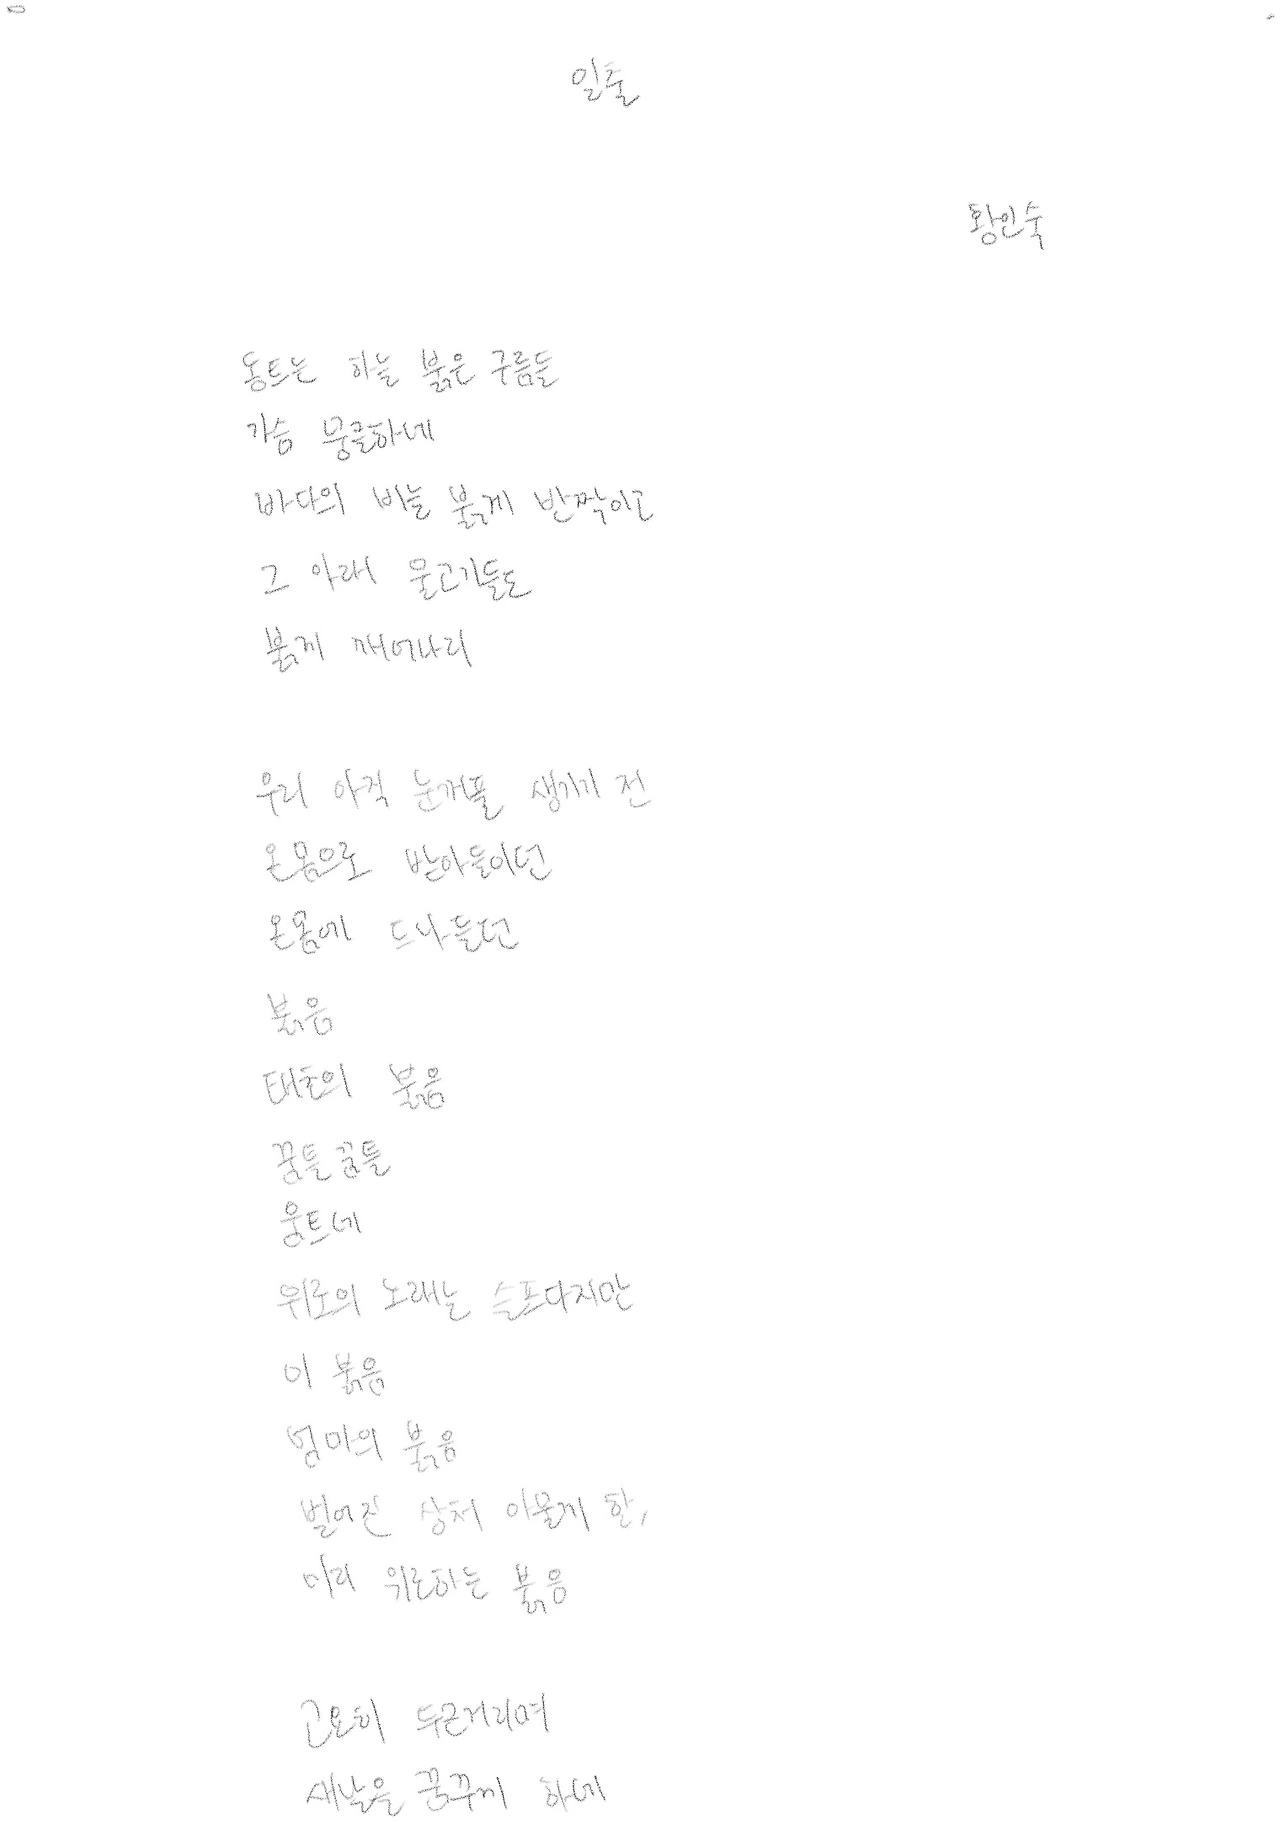 일출
황인숙
동트는 하늘 붉은 구름들
가슴 뭉클하네
바다의 비늘 붉게 반짝이고
그 아래 물고기들도
붉게 깨어나리
우리 아직 눈꺼풀 생기기 전
온몸으로 받아들이던
온몸에 드나들던
붉음
태초의 붉음
꿈틀꿈틀
움트네
위로의 노래는 슬프다지만
이 붉음
엄마의 붉음
벌어진 상처 아물게 할,
미리 위로하는 붉음
고요히 두근거리며
새날을 꿈꾸게 하네